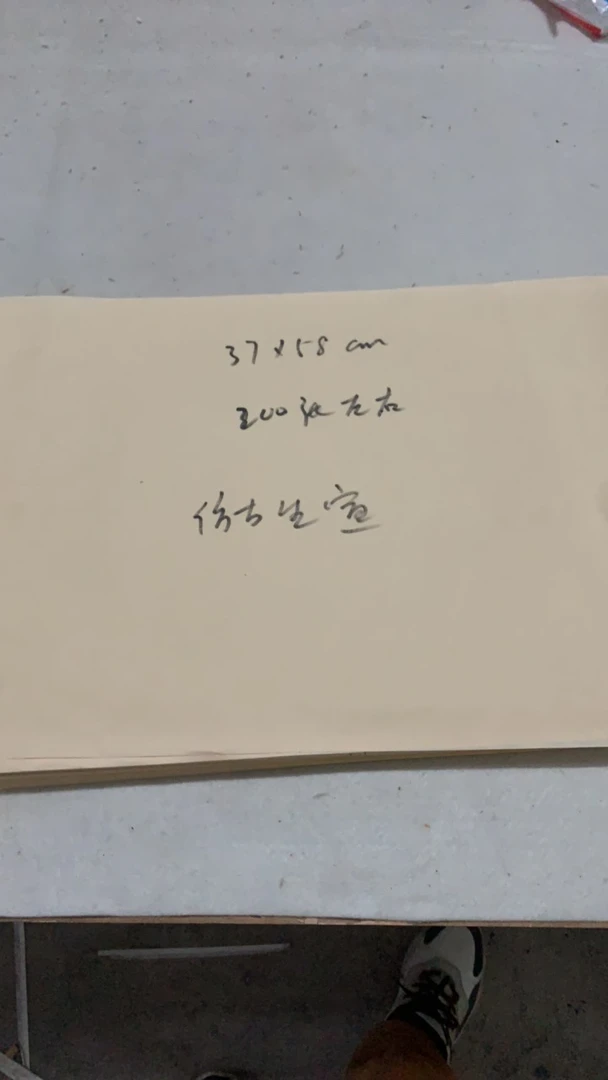 37×58 cm
200张左右
仿古生宣